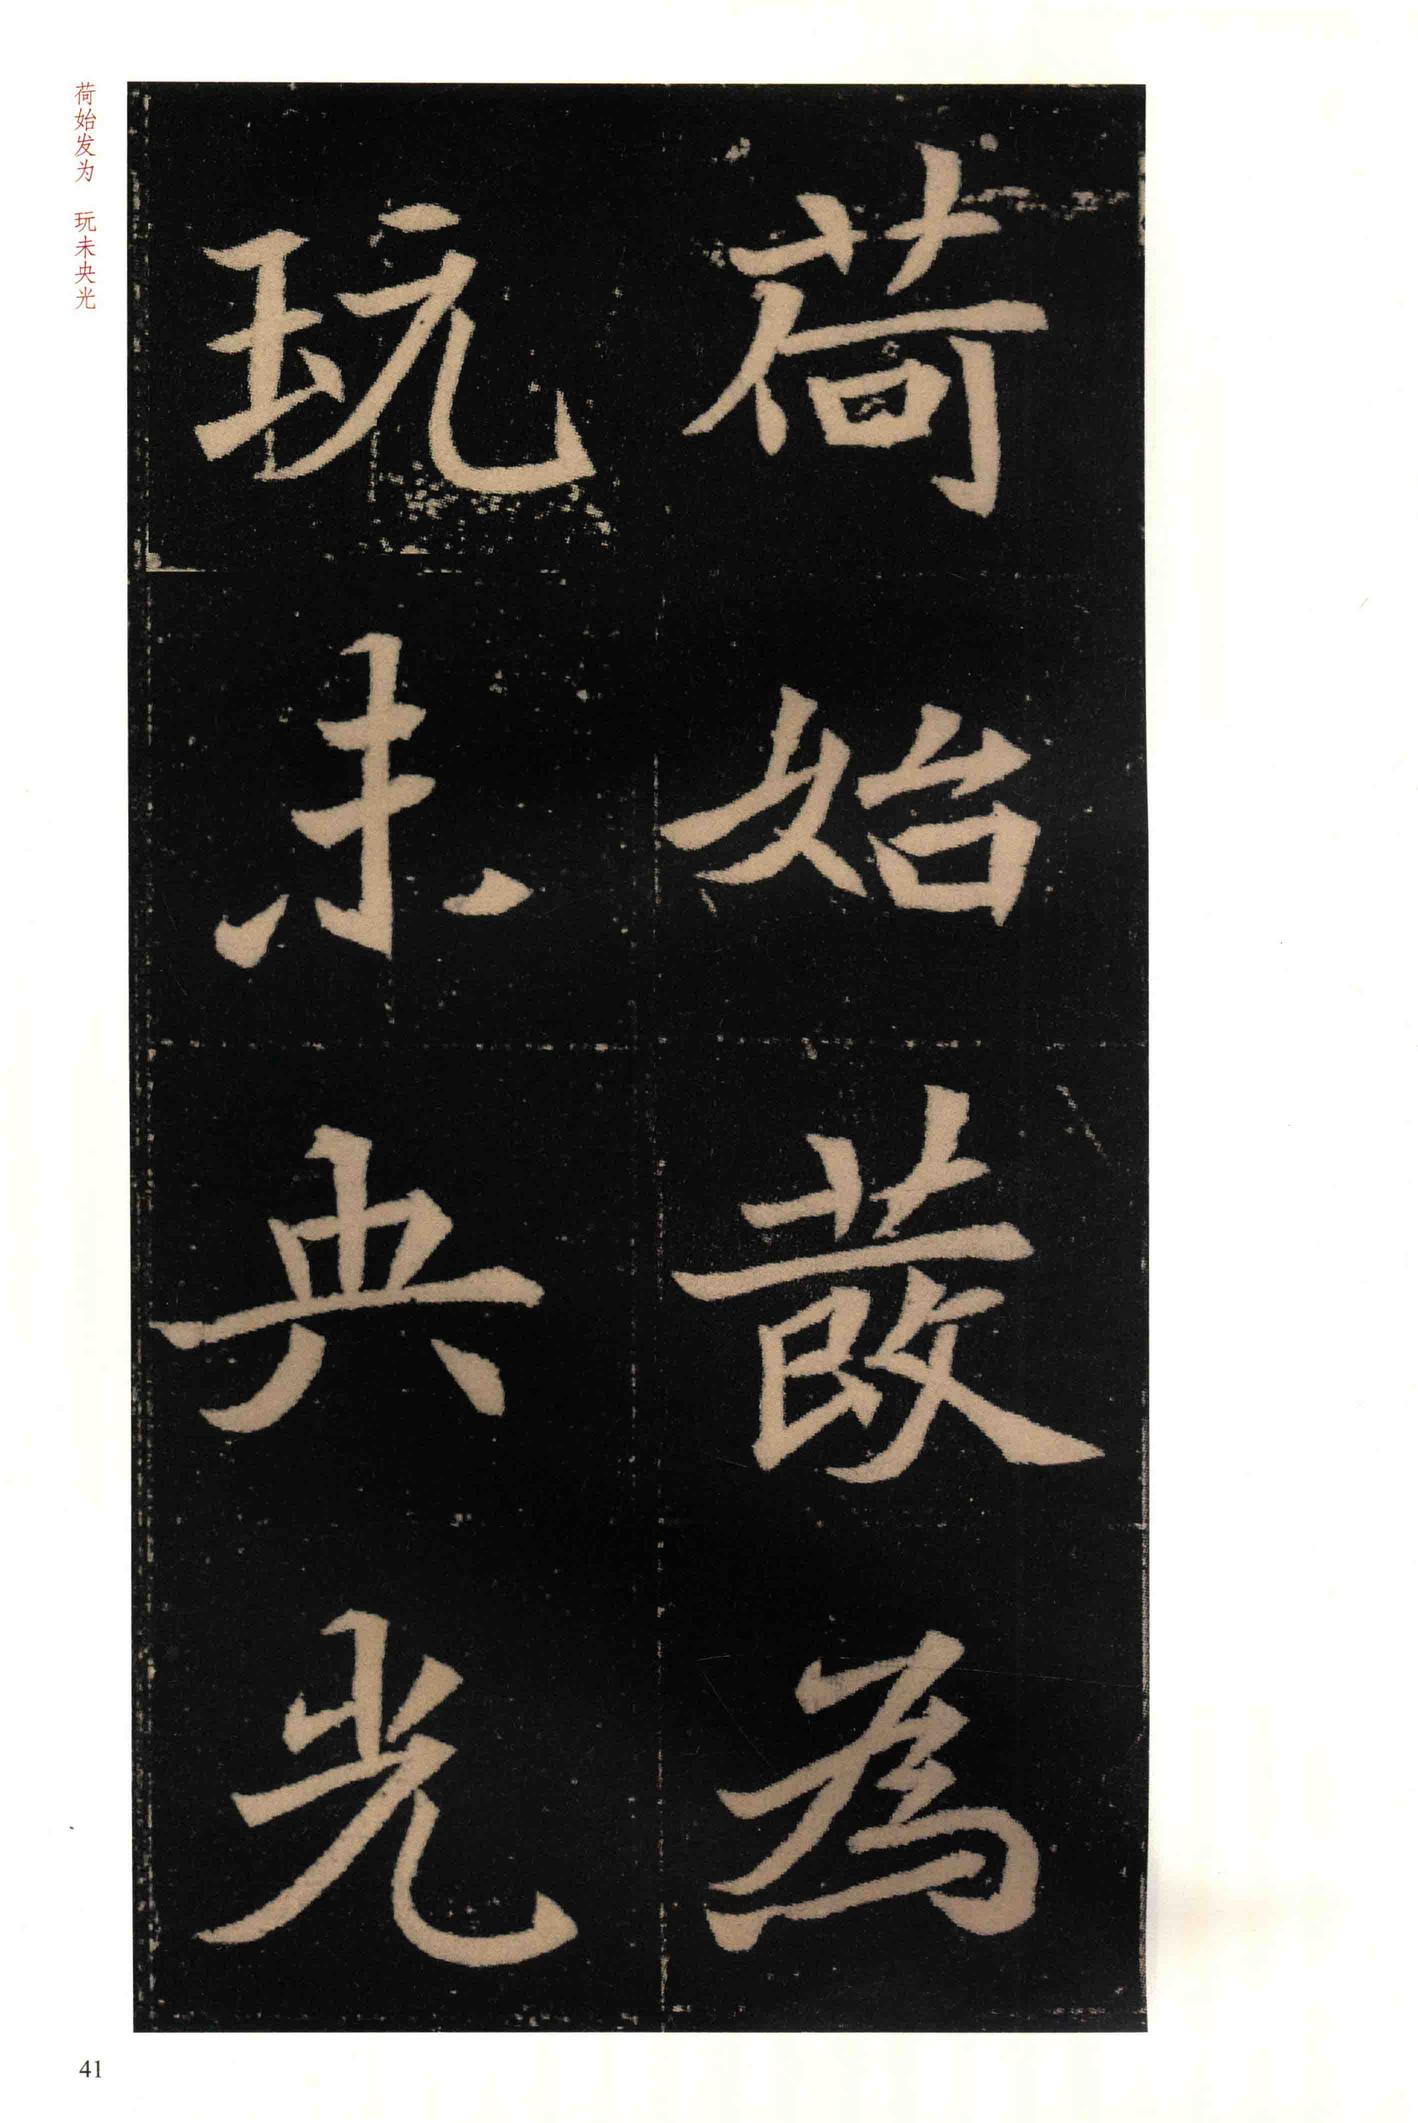 荷始发为　玩未央光
荷始𦻏為
玩未央光
41